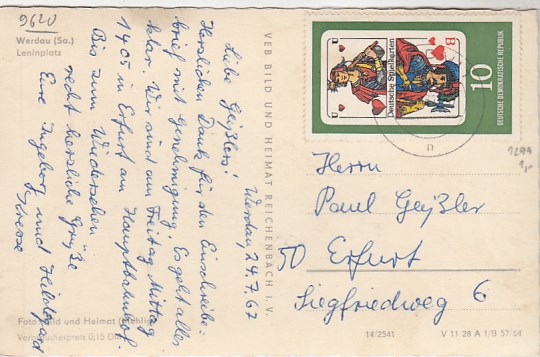 9620
Werdau (Sa.)
Leninplatz
Werdau, 24.7.67
Liebe Geißlers!
Herzlichen Dank für den Einschreibe-
brief mit Genehmigung. Es geht alles
klar. Wir sind am Freitag Mittag
14.05 in Erfurt am Hauptbahnhof.
Bis zum Wiedersehen
recht herzliche Grüße
Eure Ingeborg und Hildegard
Foto: Bild und Heimat
Verbraucherpreis 0,15 DM
VEB BILD UND HEIMAT REICHENBACH I. V.
Deutsche Spielkarten
U
U
B
B
10
DEUTSCHE DEMOKRATISCHE REPUBLIK
Herrn
Paul Geißler
50 Erfurt
Siegfriedweg 6
14/2541
V 11 28 A 1/B 57/64